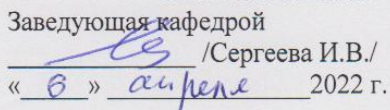 Заведующая кафедрой
/Сергеева И.В./
«6» апреля 2022 г.